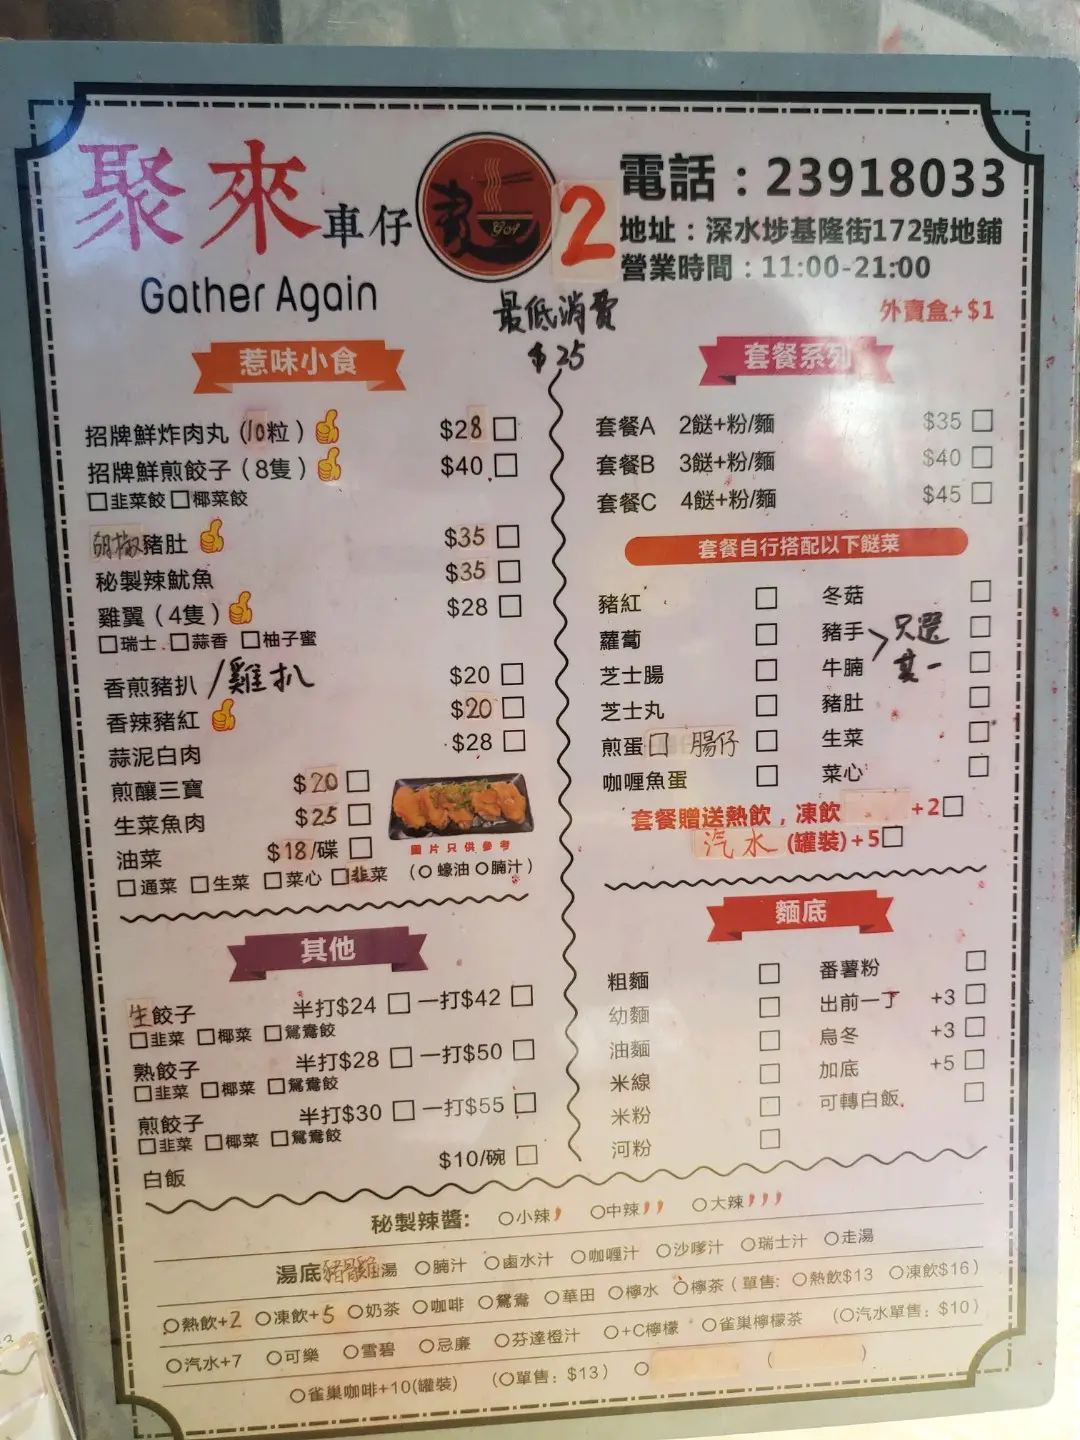 聚來車仔麵
Gather Again
2
電話：23918033
地址：深水埗基隆街172號地鋪
營業時間：11:00-21:00
最低消費
$25
外賣盒+$1
惹味小食
招牌鮮炸肉丸（10粒） $28 □
招牌鮮煎餃子（8隻） $40 □
□韭菜餃 □椰菜餃
胡椒豬肚 $35 □
秘製辣魷魚 $35 □
雞翼（4隻） $28 □
□瑞士 □蒜香 □柚子蜜
香煎豬扒/雞扒 $20 □
香辣豬紅 $20 □
蒜泥白肉 $28 □
煎釀三寶 $20 □
生菜魚肉 $25 □
油菜 $18/碟 □
圖片只供參考
□通菜 □生菜 □菜心 □韭菜 （○蠔油 ○腩汁）
其他
生餃子 半打$24 □ 一打$42 □
□韭菜 □椰菜 □鴛鴦餃
熟餃子 半打$28 □ 一打$50 □
□韭菜 □椰菜 □鴛鴦餃
煎餃子 半打$30 □ 一打$55 □
□韭菜 □椰菜 □鴛鴦餃
白飯 $10/碗 □
套餐系列
套餐A 2餸+粉/麵 $35 □
套餐B 3餸+粉/麵 $40 □
套餐C 4餸+粉/麵 $45 □
套餐自行搭配以下餸菜
豬紅 □ 冬菇 □
蘿蔔 □ 豬手 □
芝士腸 □ 牛腩 □
只選
其一
芝士丸 □ 豬肚 □
煎蛋□ 腸仔 □ 生菜 □
咖喱魚蛋 □ 菜心 □
套餐贈送熱飲，凍飲 +2□
汽水 (罐裝)+5□
麵底
粗麵 □ 番薯粉 □
幼麵 □ 出前一丁 +3 □
油麵 □ 烏冬 +3 □
米線 □ 加底 +5 □
米粉 □ 可轉白飯 □
河粉 □
秘製辣醬: ○小辣 ○中辣 ○大辣
湯底豬雞湯 ○腩汁 ○鹵水汁 ○咖喱汁 ○沙嗲汁 ○瑞士汁 ○走湯
○熱飲+2 ○凍飲+5 ○奶茶 ○咖啡 ○鴛鴦 ○華田 ○檸水 ○檸茶（單售: ○熱飲$13 ○凍飲$16）
○汽水+7 ○可樂 ○雪碧 ○忌廉 ○芬達橙汁 ○+C檸檬 ○雀巢檸檬茶 （○汽水單售: $10）
○雀巢咖啡+10(罐裝) （○單售: $13） ○ （ ）